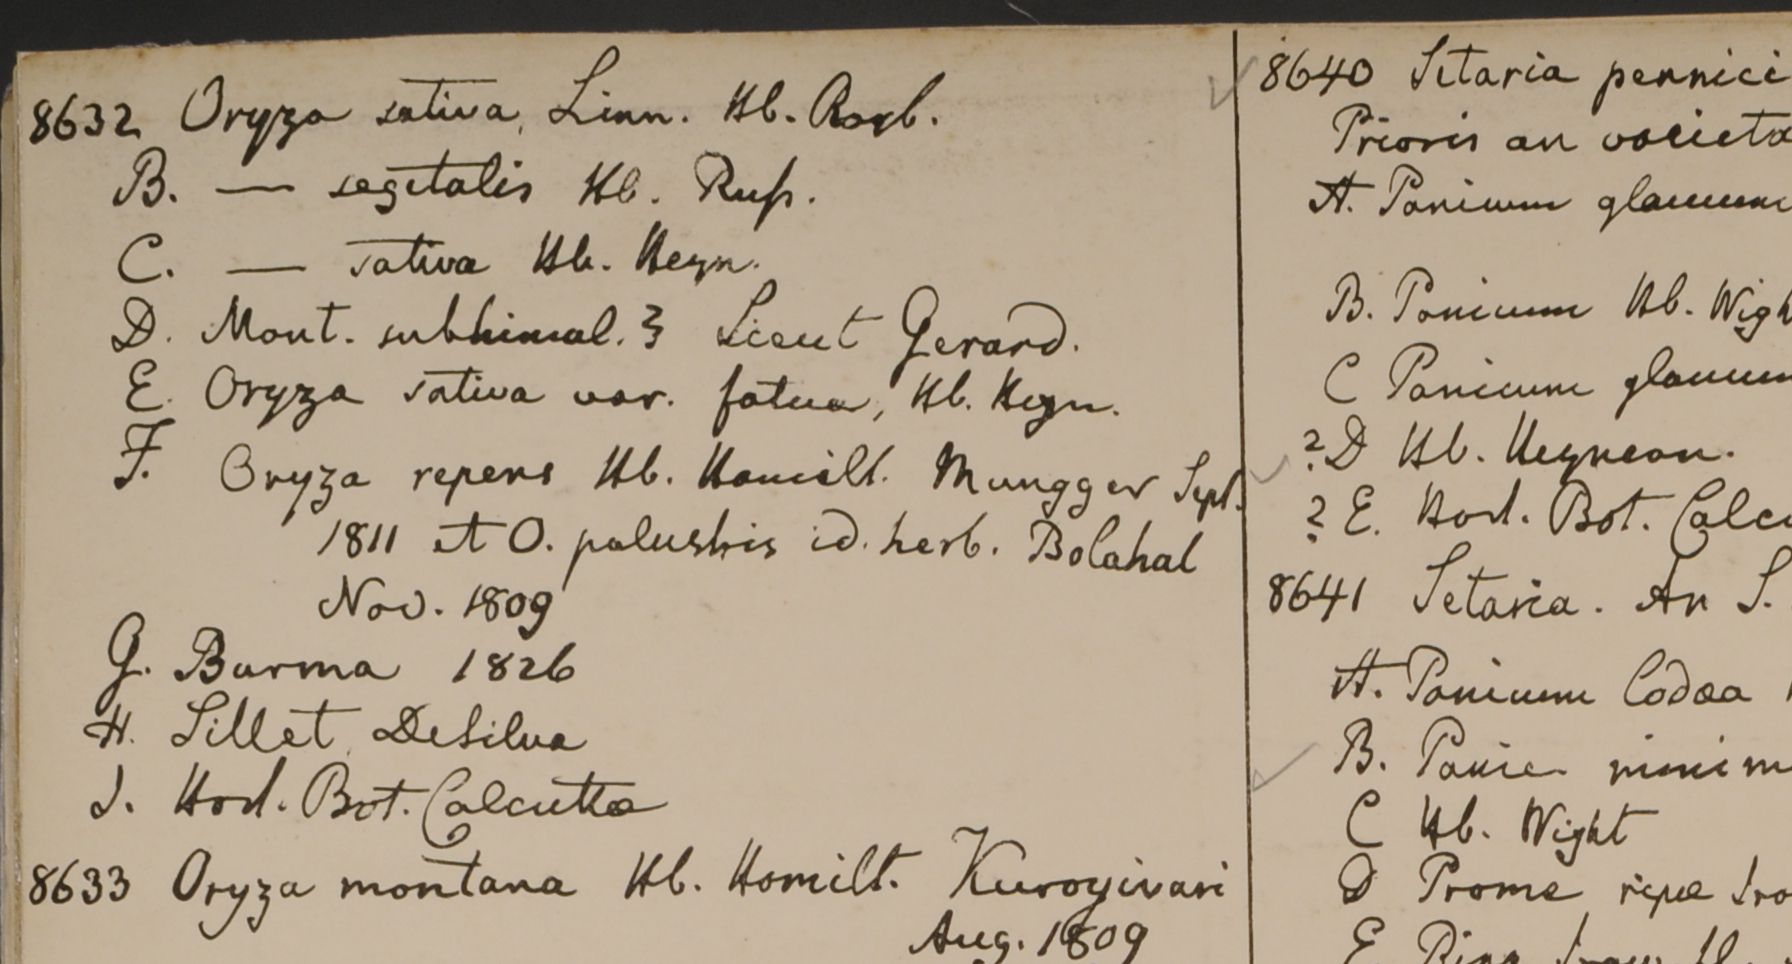 8632 Oryza sativa, Linn. Hb. Roxb.
B. — segetalis Hb. Russ.
C. — sativa Hb. Heyn.
D. Mont. subhimal. Lieut Gerard.
E. Oryza sativa var. fatua, Hb. Heyn.
F. Oryza repens Hb. Hamilt. Mungger Sept.
1811 et O. palustris id. herb. Bolahat
Nov. 1809
G. Burma 1826
H. Sillet DeSilva
I. Hort. Bot. Calcutta
8633 Oryza montana Hb. Hamilt. Kuroyivari
Aug. 1809
8640 Setaria pennici
Prioris an varieta
A. Panicum glaucum
B. Panicum Hb. Wigh
C Panicum glaucum
? D Hb. Heynean.
? E. Hort. Bot. Calcu
8641 Setaria. An S.
A. Panicum
B. Panic. minim
C Hb. Wight
D Prome ripae Ira
E.